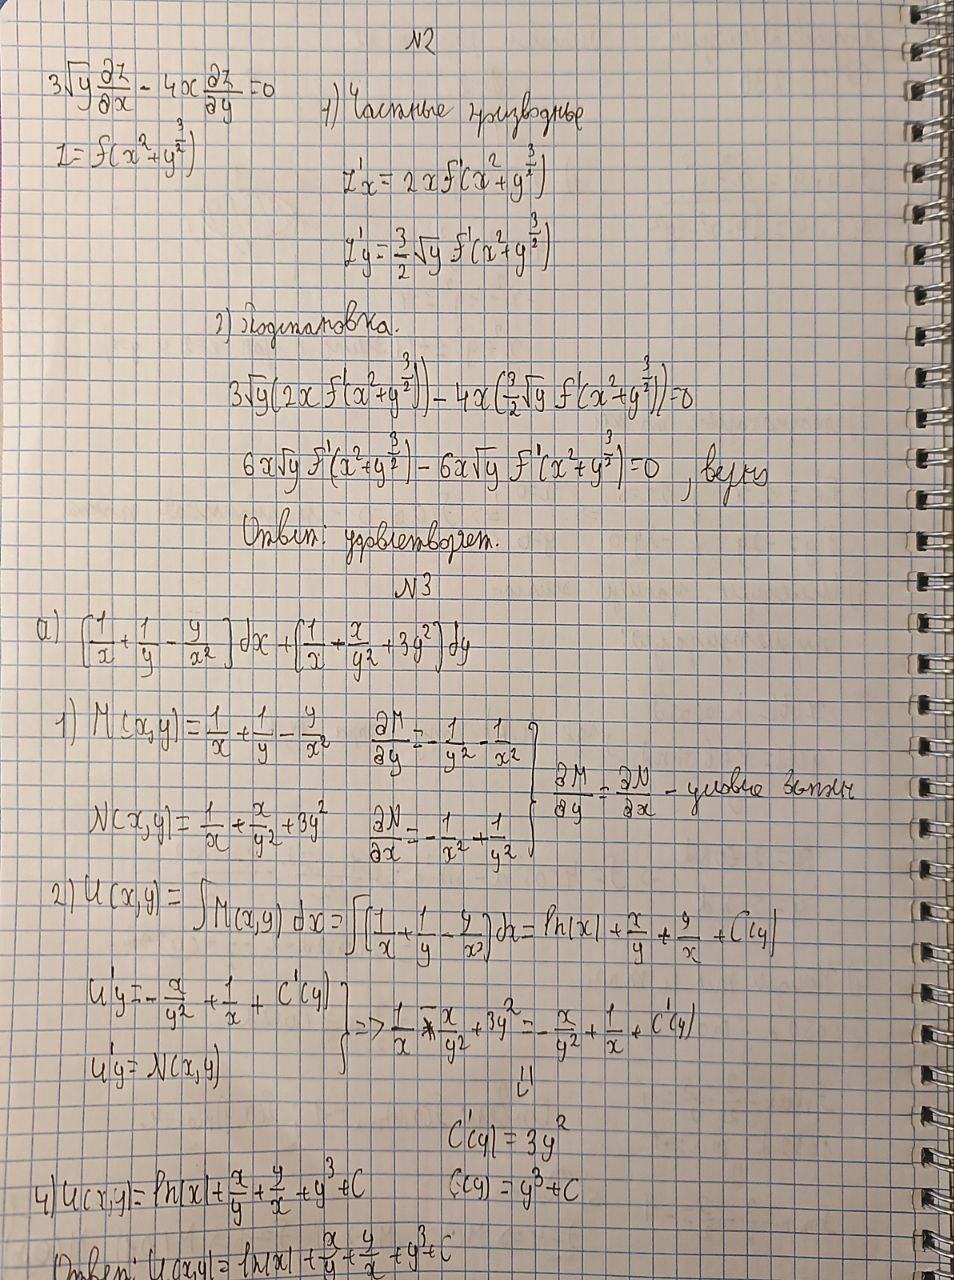 N2
3√y ∂z/∂x - 4x ∂z/∂y = 0
z = f(x² + y^(3/2))
1) Частные призводные
z'x = 2x f'(x² + y^(3/2))
z'y = 3/2 √y f'(x² + y^(3/2))
2) Подстановка.
3√y(2x f'(x² + y^(3/2))) - 4x(3/2 √y f'(x² + y^(3/2))) = 0
6x√y f'(x² + y^(3/2)) - 6x√y f'(x² + y^(3/2)) = 0, верно
Ответ: удовлетворяет.
N3
а) [1/x + 1/y - y/x²] dx + [1/x + x/y² + 3y²] dy
1) M(x,y) = 1/x + 1/y - y/x² ∂M/∂y = -1/y² - 1/x²
∂M/∂y = ∂N/∂x - условие
N(x,y) = 1/x + x/y² + 3y² ∂N/∂x = -1/x² + 1/y²
2) U(x,y) = ∫M(x,y) dx = ∫[1/x + 1/y - y/x²] dx = ln|x| + x/y + y/x + C(y)
U'y = -x/y² + 1/x + C'(y)
=> 1/x - x/y² + 3y² = -x/y² + 1/x + C'(y)
U'y = N(x,y)
C'(y) = 3y²
C(y) = y³ + C
4) U(x,y) = ln|x| + x/y + y/x + y³ + C
Ответ: U(x,y) = ln|x| + x/y + y/x + y³ + C